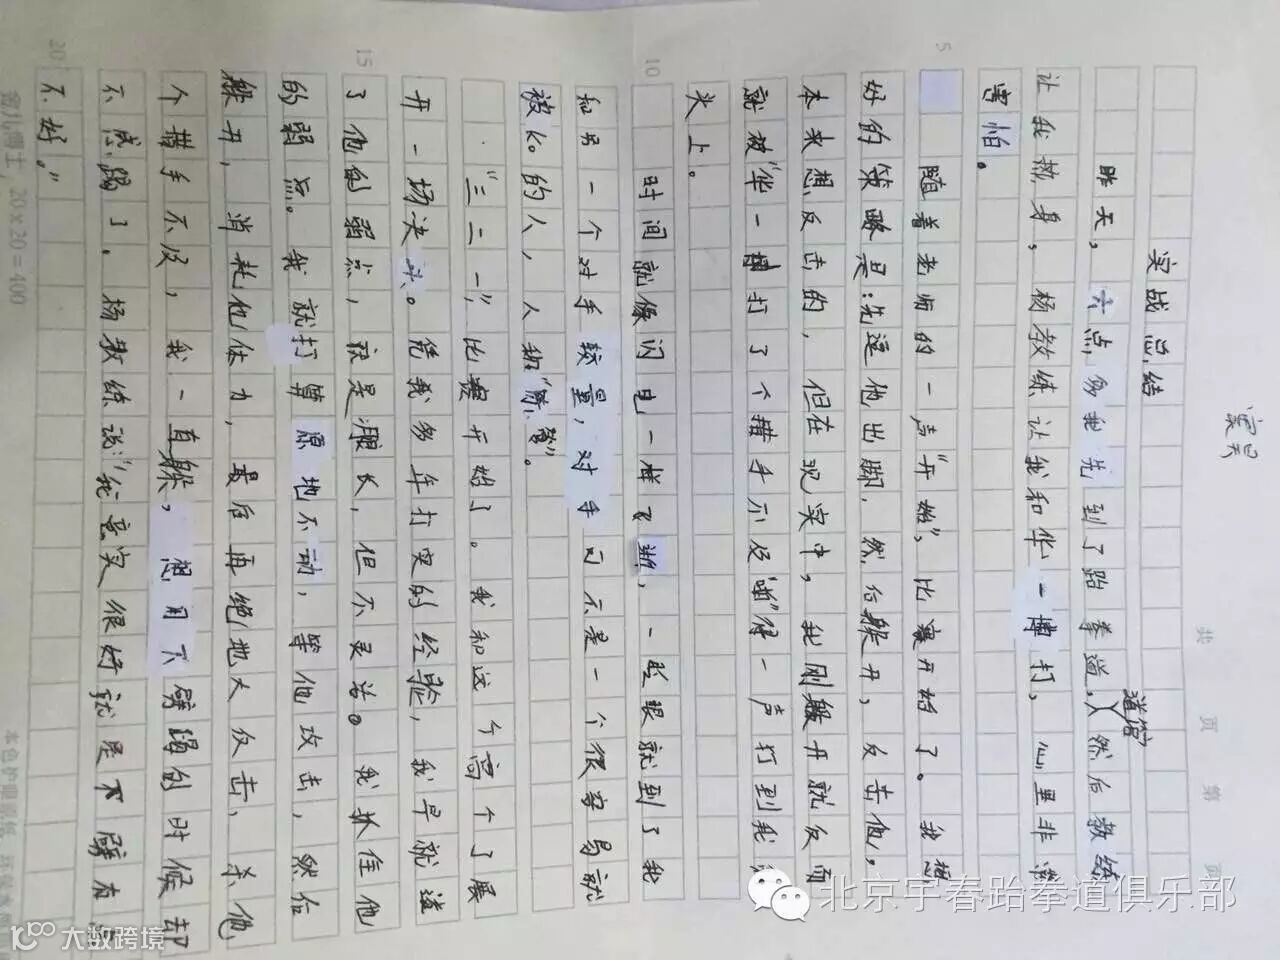 昊
实战总结
昨天,六点,多我先到了跆拳道,然后教练
道馆
让我热身,杨教练让我和华一博打,心里非常
害怕。
随着老师的一声“开始”,比赛开始了。我想
好的策略是:先逗他出脚,然后躲开,反击他,
本来想反击的,但在现实中,我刚躲开就反而
就被“华一博打了个措手不及“啪”得一声打到我
头上。
时间就像闪电一样飞逝,一眨眼就到了我
和另一个对手较量,对手可不是一个很容易就
被ko的人,人称
“三二一”,比赛开始了。我和这个高个子展
开一场决斗。凭我多年打实的经验,我早就
了他的弱点,就是腿长,但不灵活。我抓住他
的弱点。我就打算原地不动,等他攻击,然后
躲开,消耗他体力,最后再绝地大反击,杀他
个措手不及,我一直躲,想用下劈踢的时候却
不成踢了,杨教练说:“我意实很好就是下劈有点
不好。”
共 页 第 页
5
10
15
20
20×20=400
北京宇春跆拳道俱乐部
大数跨境